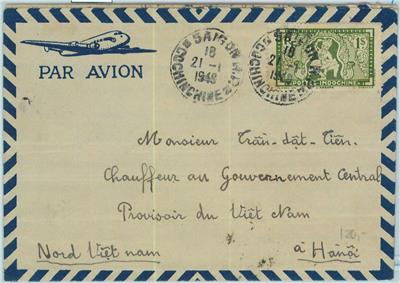 SAIGON R.P.
18
21-1
1948
COCHINCHINE
SAIGON
18
21-1
COCHINCHINE
1$
POSTES INDOCHINE
PAR AVION
Monsieur Trần-dật-Tiên
Chauffeur au Gouvernement Central
Provisoir du Việt Nam
120,-
Nord Việt nam à Hànội